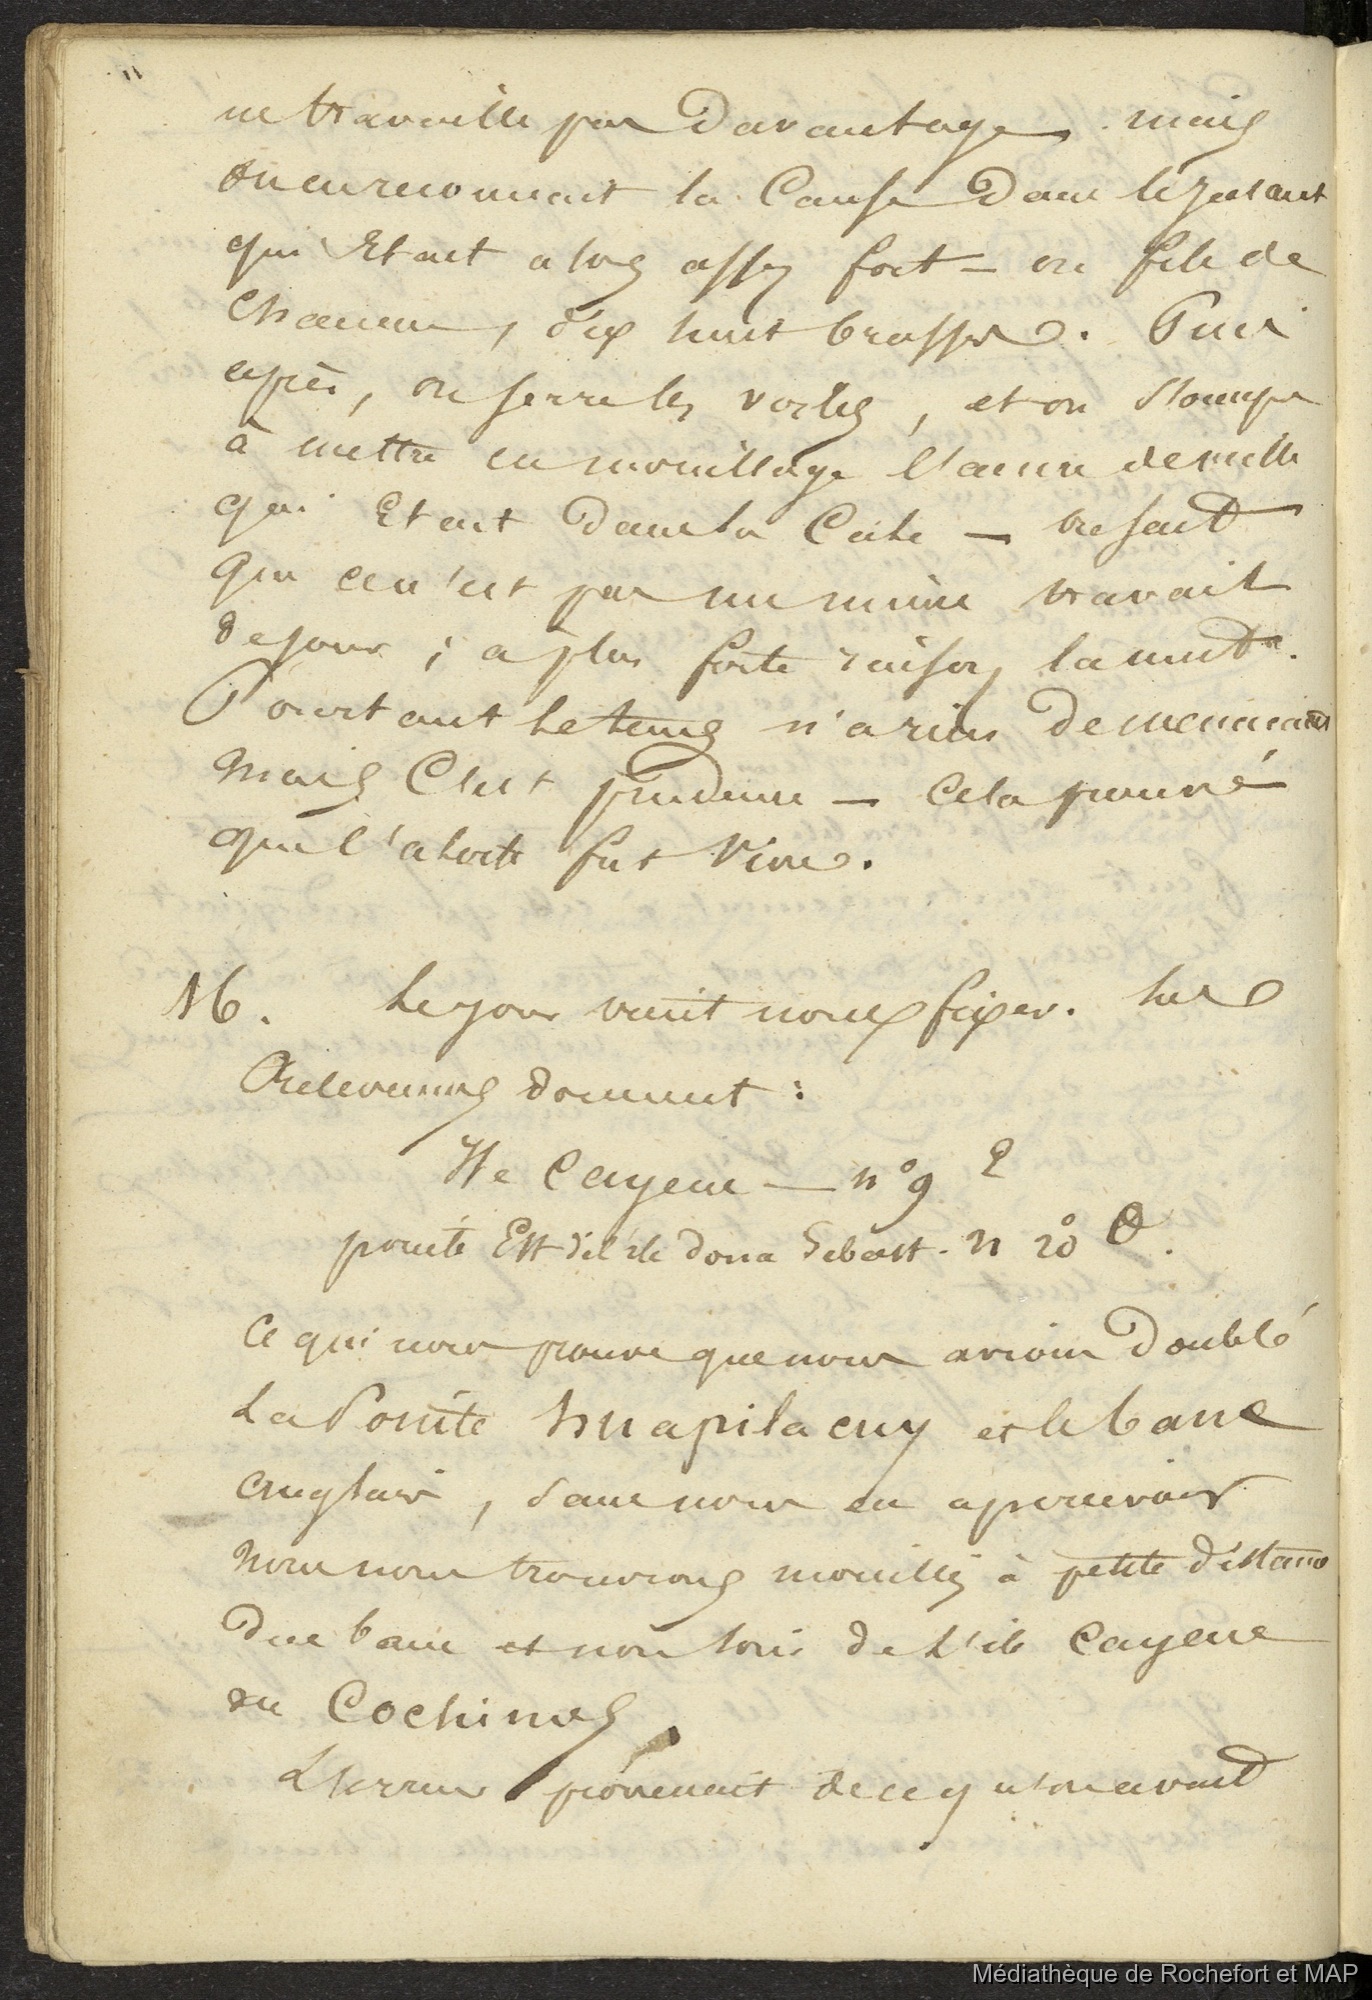 ne travaille pas davantage. mais
on en reconnait la Cause dans le jusant
qui Etait alors assez fort – on file de
Chaine, dix huit brasses. Puis
après, on serre les voiles, et on s'occupe
à mettre en mouillage l'ancre de veille
qui Etait dans la Cale – 
que ce n'est pas un mince travail
de jour ; a plus forte raison, la nuit.
Pourtant le temps n'a rien de menaçant
mais C'est prudence – Cela prouve
que l'alerte fut Vive.
16. Le jour vint nous fixer. les
Relevemens donnent :
Ile Cayeue — n° 9 E
pointe Est d'el ile dona Sebast. n 20° O.
Ce qui nous prouve que nous avions Doublé
La Pointe Huapilacuy et le banc
anglais, sans nous en apercevoir
Nous nous trouvions mouillés à petite distance
Du banc et non loin de L'ile Cayeue
ou Cochinos
L'Erreur provenait de ce qu'on avait
Médiathèque de Rochefort et MAP